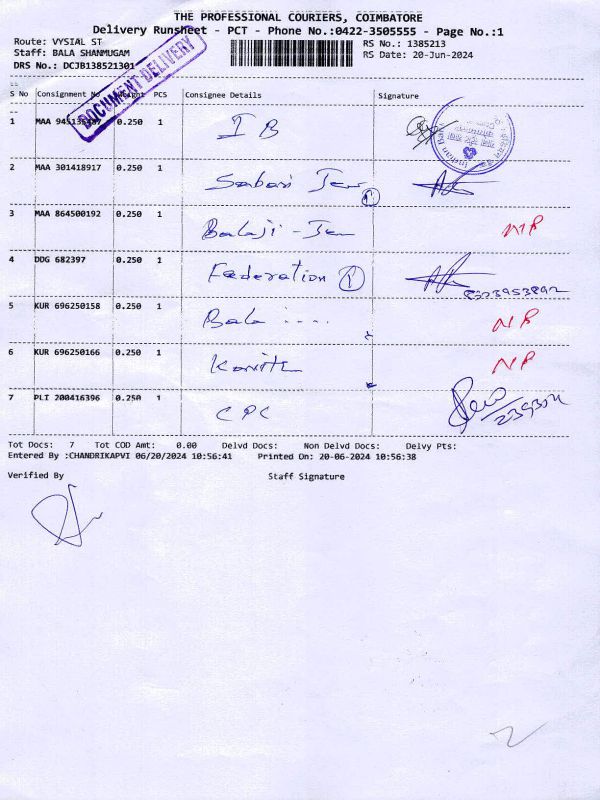 THE PROFESSIONAL COURIERS, COIMBATORE
Delivery Runsheet - PCT - Phone No.:0422-3505555 - Page No.:1
Route: VYSIAL ST
RS No.: 1385213
Staff: BALA SHANMUGAM
RS Date: 20-Jun-2024
DRS No.: DCJB138521301
DOCUMENT DELIVERY
S No Consignment No Weight PCS Consignee Details Signature
1 MAA 0.250 1 I B
Indian Bank
2 MAA 301418917 0.250 1 Sabari Jew 1
3 MAA 864500192 0.250 1 Balaji - Jew NP
4 DDG 682397 0.250 1 Faderation 1
5 KUR 696250158 0.250 1 Bala NP
6 KUR 696250166 0.250 1 NP
7 PLI 200416396 0.250 1 CPC
Tot Docs: 7 Tot COD Amt: 0.00 Delvd Docs: Non Delvd Docs: Delvy Pts:
Entered By :CHANDRIKAPVI 06/20/2024 10:56:41 Printed On: 20-06-2024 10:56:38
Verified By Staff Signature